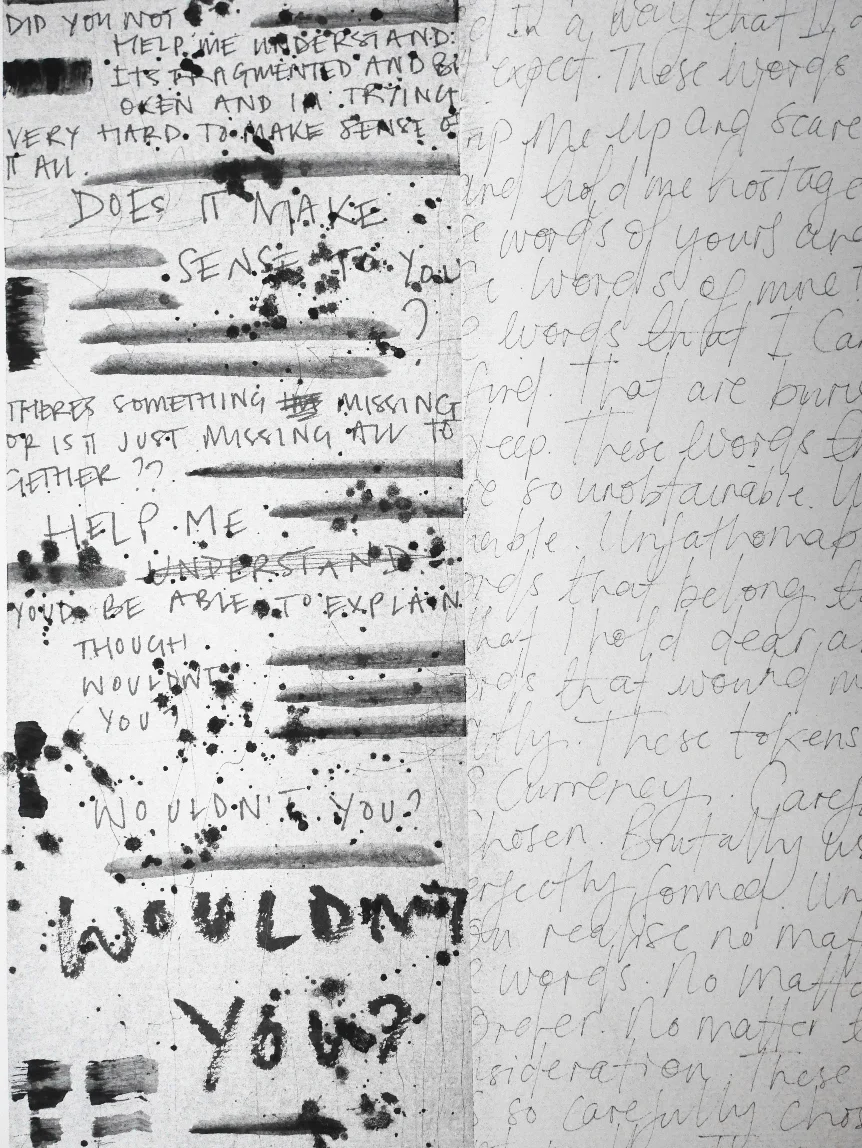 DID YOU NOT
HELP ME UNDERSTAND.
ITS FRAGMENTED AND BR
OKEN AND IM TRYING
VERY HARD. TO MAKE SENSE OF
IT ALL.
DOES IT MAKE
SENSE TO YOU
?
THERES SOMETHING MISSING
OR IS IT JUST MISSING ALL TO
GETHER ??
HELP ME
UNDERSTAND.
YOUD BE ABLE TO EXPLAIN
THOUGH
WOULDNT
YOU?
WOULDN'T YOU?
WOULDN'T
YOU?
in a way that I
expect. These words
me up and scare
and hold me hostage
words of yours and
words of mine
words that I Can
find. That are buri
deep. These words th
so unobtainable. U
able. Unfathomab
ords that belong to
hat I hold dear a
rds that wound m
tly. These tokens
Currency. Caref
hosen. Brutally us
erfectly formed. Un
you realise no mat
words. No matte
Order. No matter
sideration. These
so carefully chos